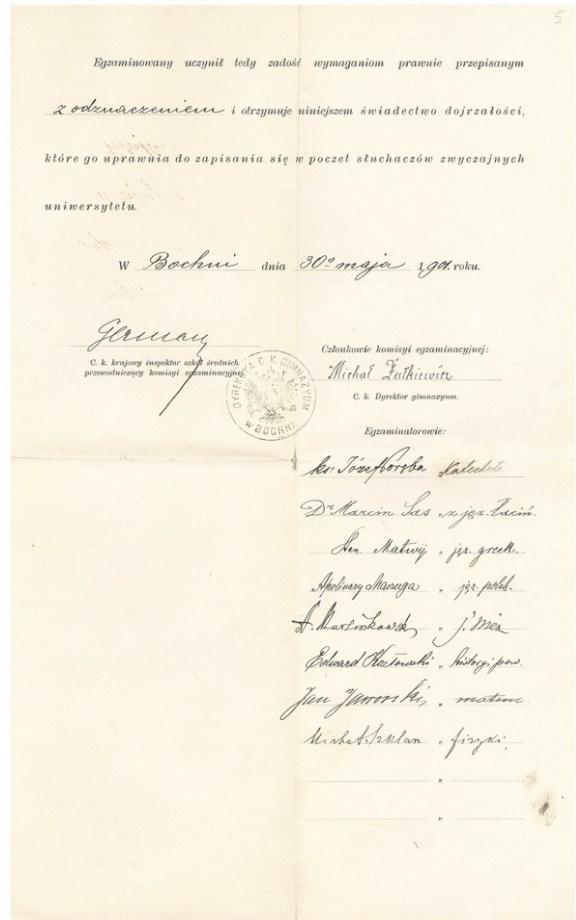 5
Egzaminowany uczynił tedy zadość wymaganiom prawnie przepisanym
z odznaczeniem i otrzymuje niniejszem świadectwo dojrzałości,
które go uprawnia do zapisania się w poczet słuchaczów zwyczajnych
uniwersytetu.
W Bochni dnia 30º maja 1901. roku.
German
C. k. krajowy inspektor szkół średnich.
przewodniczący komisyi egzaminacyjnej.
DYREKCYA C. K. GIMNAZYUM
W BOCHNI
Członkowie komisyi egzaminacyjnej:
Michał Żułkiewicz
C. k. Dyrektor gimnazyum.
Egzaminatorowie:
ks. Józef Wórsba Katecheta
Dr Marcin Sas „ z jęz. łaciń.
Matwij „ jęz. greck.
Apolinary Maczuga „ jęz. polsk.
„ j. niem
Edward Kozłowski „ historyi pow.
Jan Jaworski, „ matem.
Michał Szklarz „ fizyki,
„
„